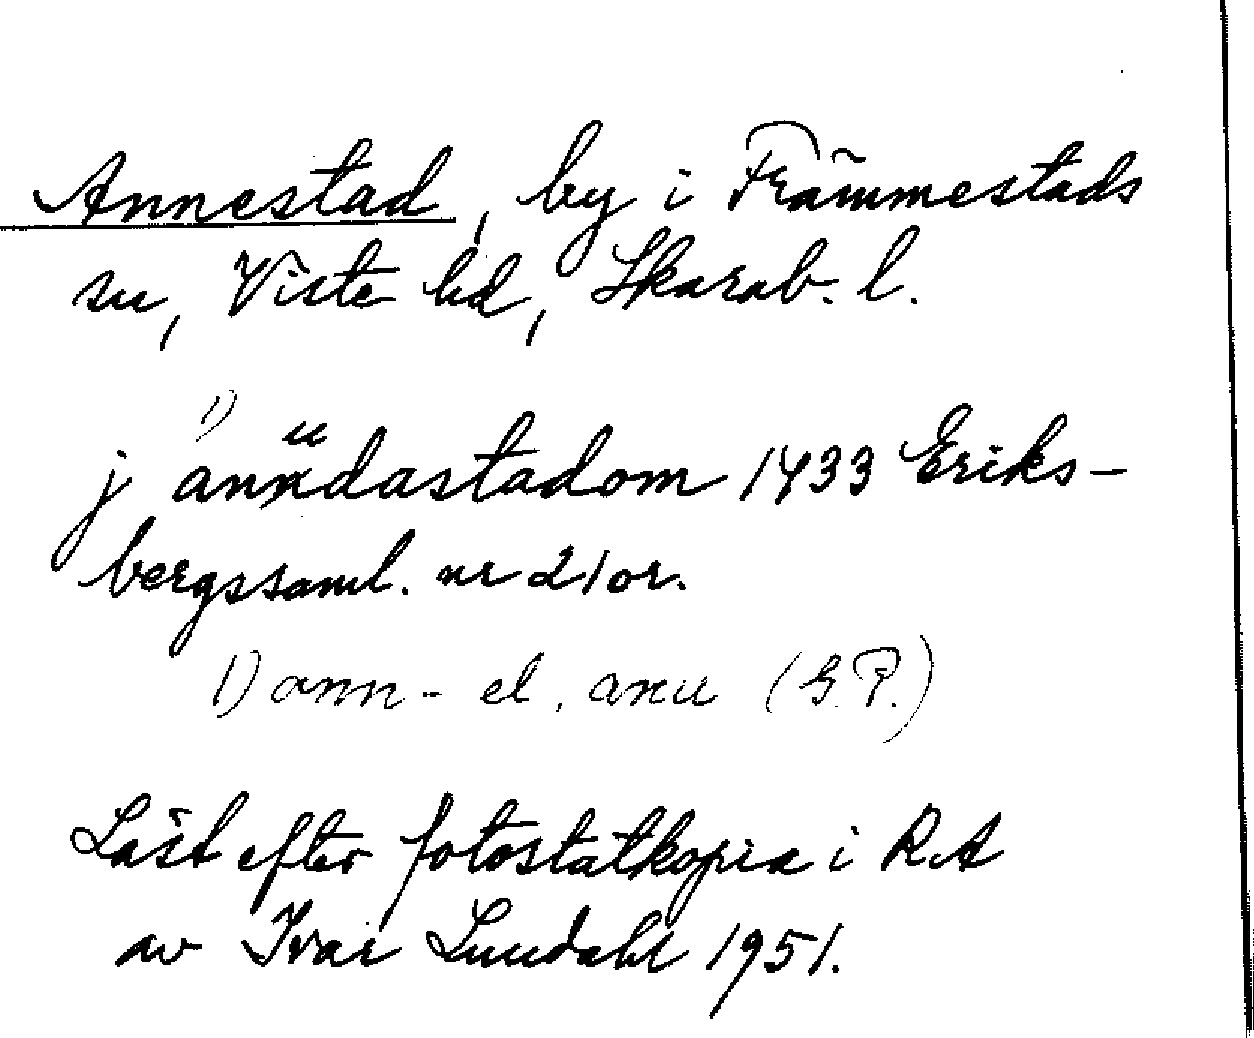 Annestad, by i Främmestads
sn, Viste hd, Skarab. l.
j 1) anndastadom 1433 Eriks-
bergssaml. nr 21 or.
1) ann- el. anu (G.P.)
Läst efter fotostatkopia i RA
av Ivar Lundahl 1951.